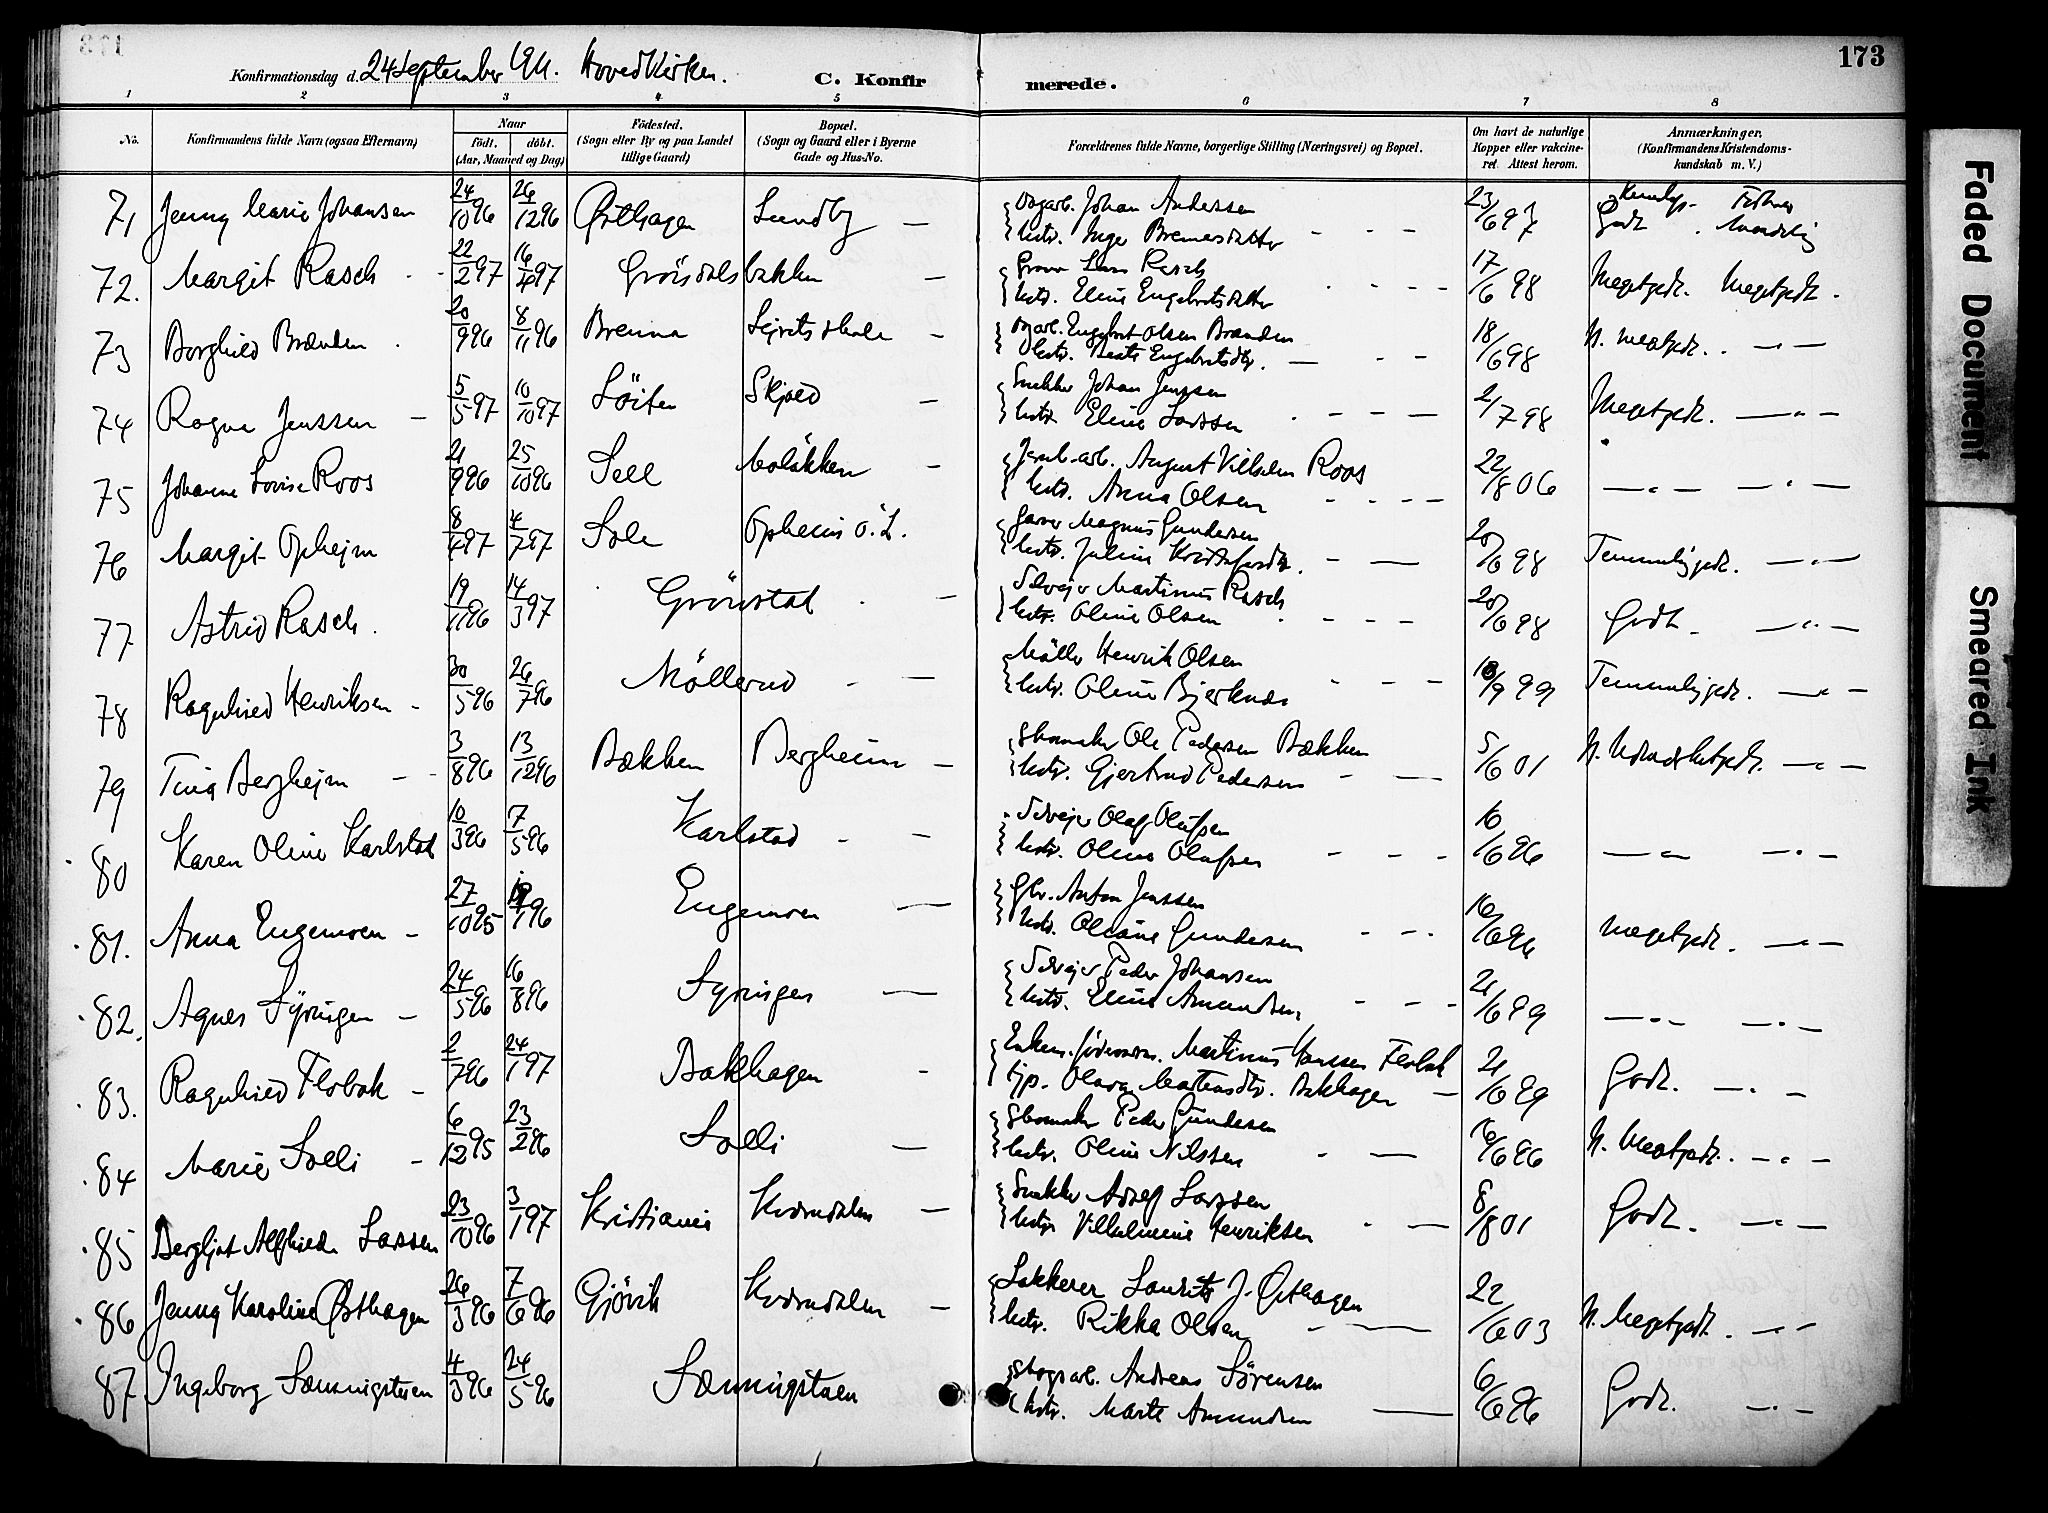 173
Konfirmationsdag d. 24 September 1911. Hovedkirken. C. Konfirmerede.
1 2 3 4 5 6 7 8
No. Konfirmandens fulde Navn (ogsaa Efternavn) Naar født. døbt. (Aar, Maaned og Dag) Fødested. (Sogn eller By og paa Landet tillige Gaard) Bopæl. (Sogn og Gaard eller i Byerne Gade og Hus-No. Forældrenes fulde Navne, borgerlige Stilling (Næringsvei) og Bopæl. Om havt de naturlige Kopper eller vaccineret. Attest herom. Anmærkninger. (Konfirmandens Kristendomskundskab m. V.)
71 Jenny Marie Johansen 24/10 96 26/12 96 Østhagen Lundby — Johan Andersen
Inger 23/6 97 Godt
72. Margit Rasch 22/2 97 16/4 97 Grønsdalsbakken — Lars Rasch
Eline Engebretsdatter 17/6 98 Megetgodt. Megetgodt.
73 Borghild Brænden 20/9 96 8/11 96 Brenna — Engebret Olsen Brænden
Beate Engebretsdtr. 18/6 98 N. megetgodt. — " —
74 Ragna Jenssen — 5/5 97 10/10 97 Løiten — Snekker Johan Jenssen
Hstr. Eline Larssen 2/7 98 Megetgodt. — " —
75 Johanne Lovise Roos 21/9 96 25/10 96 — August Vilhelm Roos
Hstr. Anna Olsen 22/8 06 — " — — " —
76 Margit Opheim 8/4 97 4/7 97 Opheim Ø. L. Garver Magnus Gundersen
Hstr. Juline Kristofersdtr. 20/6 98 Temmeliggodt. — " —
77 Astrid Rasch. 19/11 96 14/3 97 Grønstad — Selveier Martinus Rasch
Hstr. Oline Olsen 20/6 98 Godt. — " —
78 Ragnhild Henriksen 30/5 96 26/7 96 Møllerud — Møller Henrik Olsen
Hstr. Oline Bjerknæs 18/9 99 Temmeliggodt. — " —
79 Tina Bergheim 3/8 96 13/12 96 Bækken Bergheim — Skomaker Ole Pedersen Bækken
Hstr. Gjertrud Pedersen 5/6 01 — " —
80 Karen Oline Karlstad 10/3 96 7/5 96 Karlstad — Selveier Olaf Olufsen
Hstr. Oline Olafsen 16/6 96 — " — — " —
81. Anna Engemoen — 27/10 95 96 Engemoen — Gbr. Anton Jenssen
Hstr. Gundersen 16/6 96 Megetgodt. — " —
82. Agnes Syringen — 24/5 96 16/8 96 Syringen — Selveier Peder Johansen
Hstr. Eline Amundsen 21/6 99 — " — — " —
83. Ragnhild Flobak — 2/7 96 24/1 97 Bakhagen — Martinus Hanssen Flobak
tjp. Olava Bakhagen — 21/6 99 Godt. — " —
84 Marie Solli — 6/12 95 23/2 96 Solli — Skomaker Peder Gundersen
Hstr. Oline Nilssen 16/6 96 N. Megetgodt. — " —
85 Bergljot Alfhilde Larssen 23/10 96 3/1 97 Kristiania Kværndalen — Snekker Adolf Larssen
Hstr. Vilhelmine Henriksen 8/8 01 Godt. — " —
86 Jenny Karoline Østhagen 26/3 96 7/6 96 Gjøvik Kværndalen — Lakkerer Laurits J. Østhagen
Hstr. Rikka Olsen 22/6 03 N. Megetgodt. — " —
87 Ingeborg Sænningstuen 4/3 96 24/5 96 Sænningstuen Skogsarb. Andreas Sørensen
Hstr. Marte Amundsen — 6/6 96 Godt. — " —
Faded Document
Smeared Ink